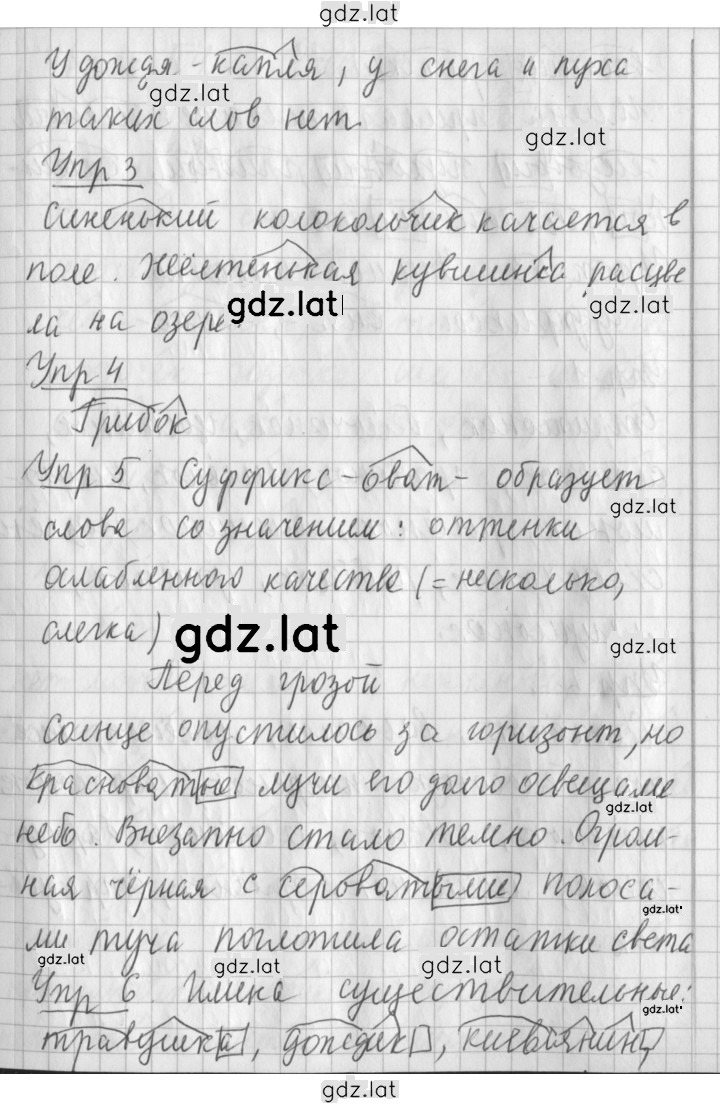 gdz.lat
У дождя - капля, у снега и пуха
gdz.lat
таких слов нет.
gdz.lat
Упр 3
Синенький колокольчик качается в
поле. Жёлтенькая кувшинка расцве
gdz.lat
gdz.lat
ла на озере.
Упр 4
Грибок
Упр 5 Суффикс -оват- образует
gdz.lat
слова со значением: оттенки
ослабленного качества (= несколько,
слегка)
gdz.lat
gdz.lat
Перед грозой
Солнце опустилось за горизонт, но
красноватые лучи его долго освещали
gdz.lat
небо. Внезапно стало темно. Огром-
ная чёрная с сероватыми полоса-
gdz.lat
ми туча поглотила остатки света
gdz.lat
gdz.lat
gdz.lat
Упр 6. Имена существительные:
gdz.lat
травушка, дождик, киевлянин,
gdz.lat